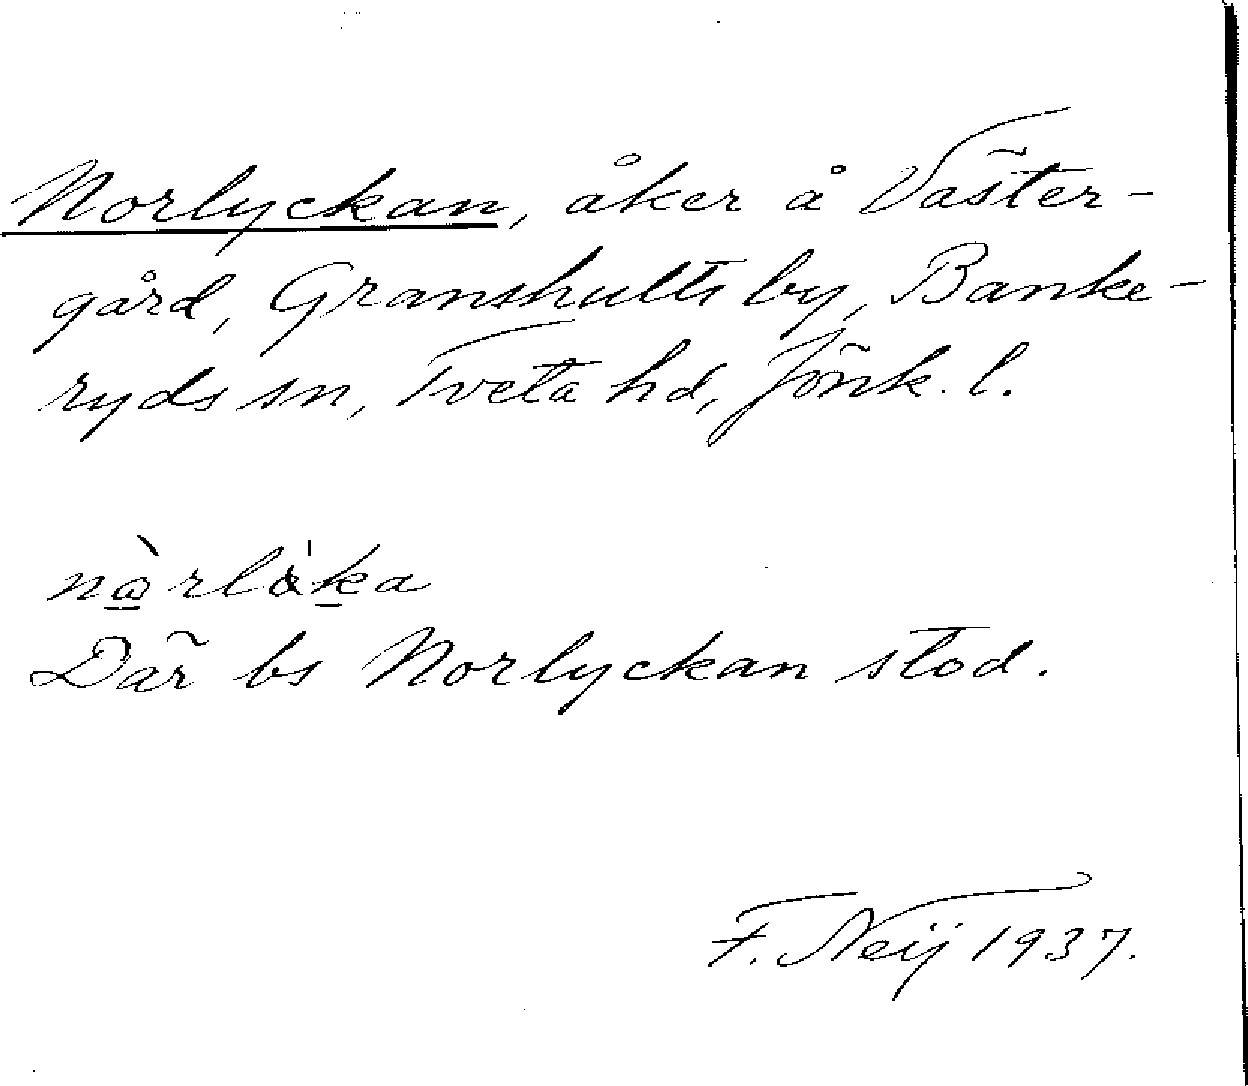 Norlyckan, åker å Väster-
gård, Granshults by, Banke-
ryds sn, Tveta hd, Jönk. l.
Där bs Norlyckan stod.
F. Neij 1937.